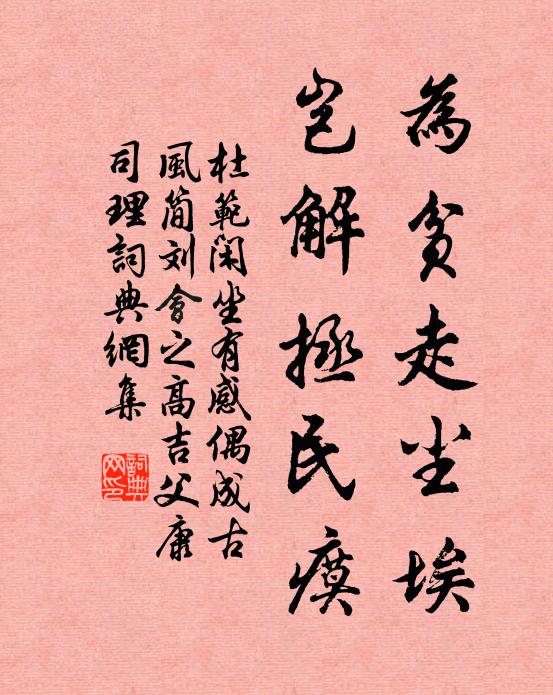 為貧走尘埃
岂解拯民瘼
杜範闲坐有感偶成古
風简刘會之高吉父康
司理詞典網集
詞典
网印